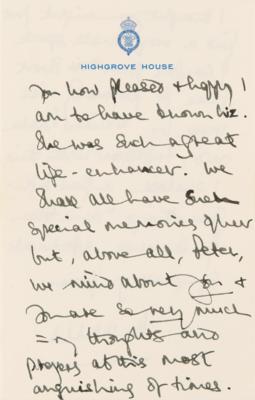 HIGHGROVE HOUSE
you how pleased & happy I
am to have known Liz.
She was such a great
life-enhancer. We
shall all have such
special memories of her
but, above all, Peter,
we mind about you &
you are so very much
in my thoughts and
prayers at this most
anguishing of times.